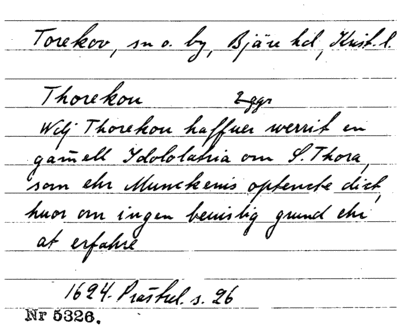 Torekov, sn o. by, Bjäre hd, Krist. l.
Thorekou 2 ggr
Wdj Thorekou haffuer werrit en
gam̄ell Idololatria om S. Thora,
som ehr Munckenis optencte dict,
huor om ingen beuislig grund ehr
at erfahre
1624. Präst rel. s. 26
Nr 5326.